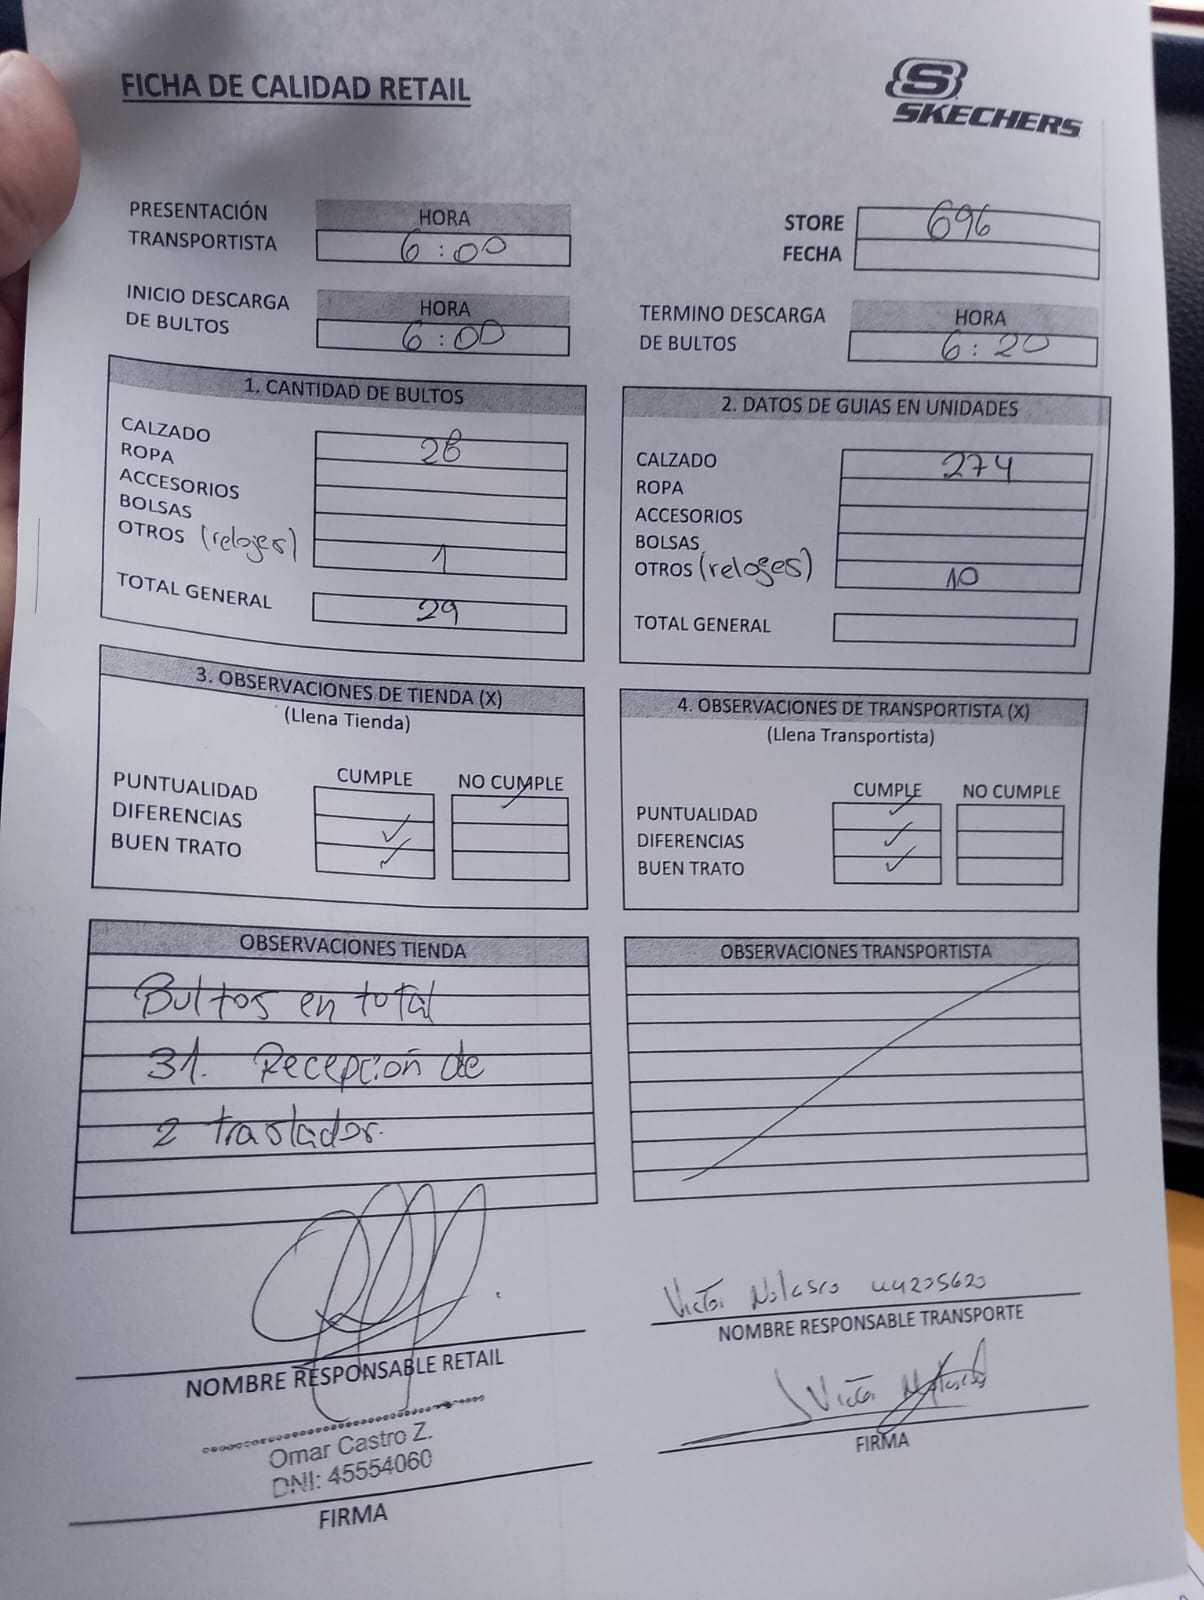 FICHA DE CALIDAD RETAIL
S
SKECHERS
PRESENTACIÓN
TRANSPORTISTA
HORA
6:00
STORE 696
FECHA
INICIO DESCARGA
DE BULTOS
HORA
6:00
TERMINO DESCARGA
DE BULTOS
HORA
6:20
1. CANTIDAD DE BULTOS
CALZADO 28
ROPA
ACCESORIOS
BOLSAS
OTROS (relojes) 1
TOTAL GENERAL 29
2. DATOS DE GUIAS EN UNIDADES
CALZADO 274
ROPA
ACCESORIOS
BOLSAS
OTROS (relojes) 10
TOTAL GENERAL
3. OBSERVACIONES DE TIENDA (X)
(Llena Tienda)
CUMPLE NO CUMPLE
PUNTUALIDAD ✓
DIFERENCIAS ✓
BUEN TRATO ✓
4. OBSERVACIONES DE TRANSPORTISTA (X)
(Llena Transportista)
CUMPLE NO CUMPLE
PUNTUALIDAD ✓
DIFERENCIAS ✓
BUEN TRATO ✓
OBSERVACIONES TIENDA
Bultos en total
31. Recepción de
2 traslados.
OBSERVACIONES TRANSPORTISTA
NOMBRE RESPONSABLE RETAIL
Omar Castro Z.
DNI: 45554060
FIRMA
Victor Nolasco
NOMBRE RESPONSABLE TRANSPORTE
Victor
FIRMA